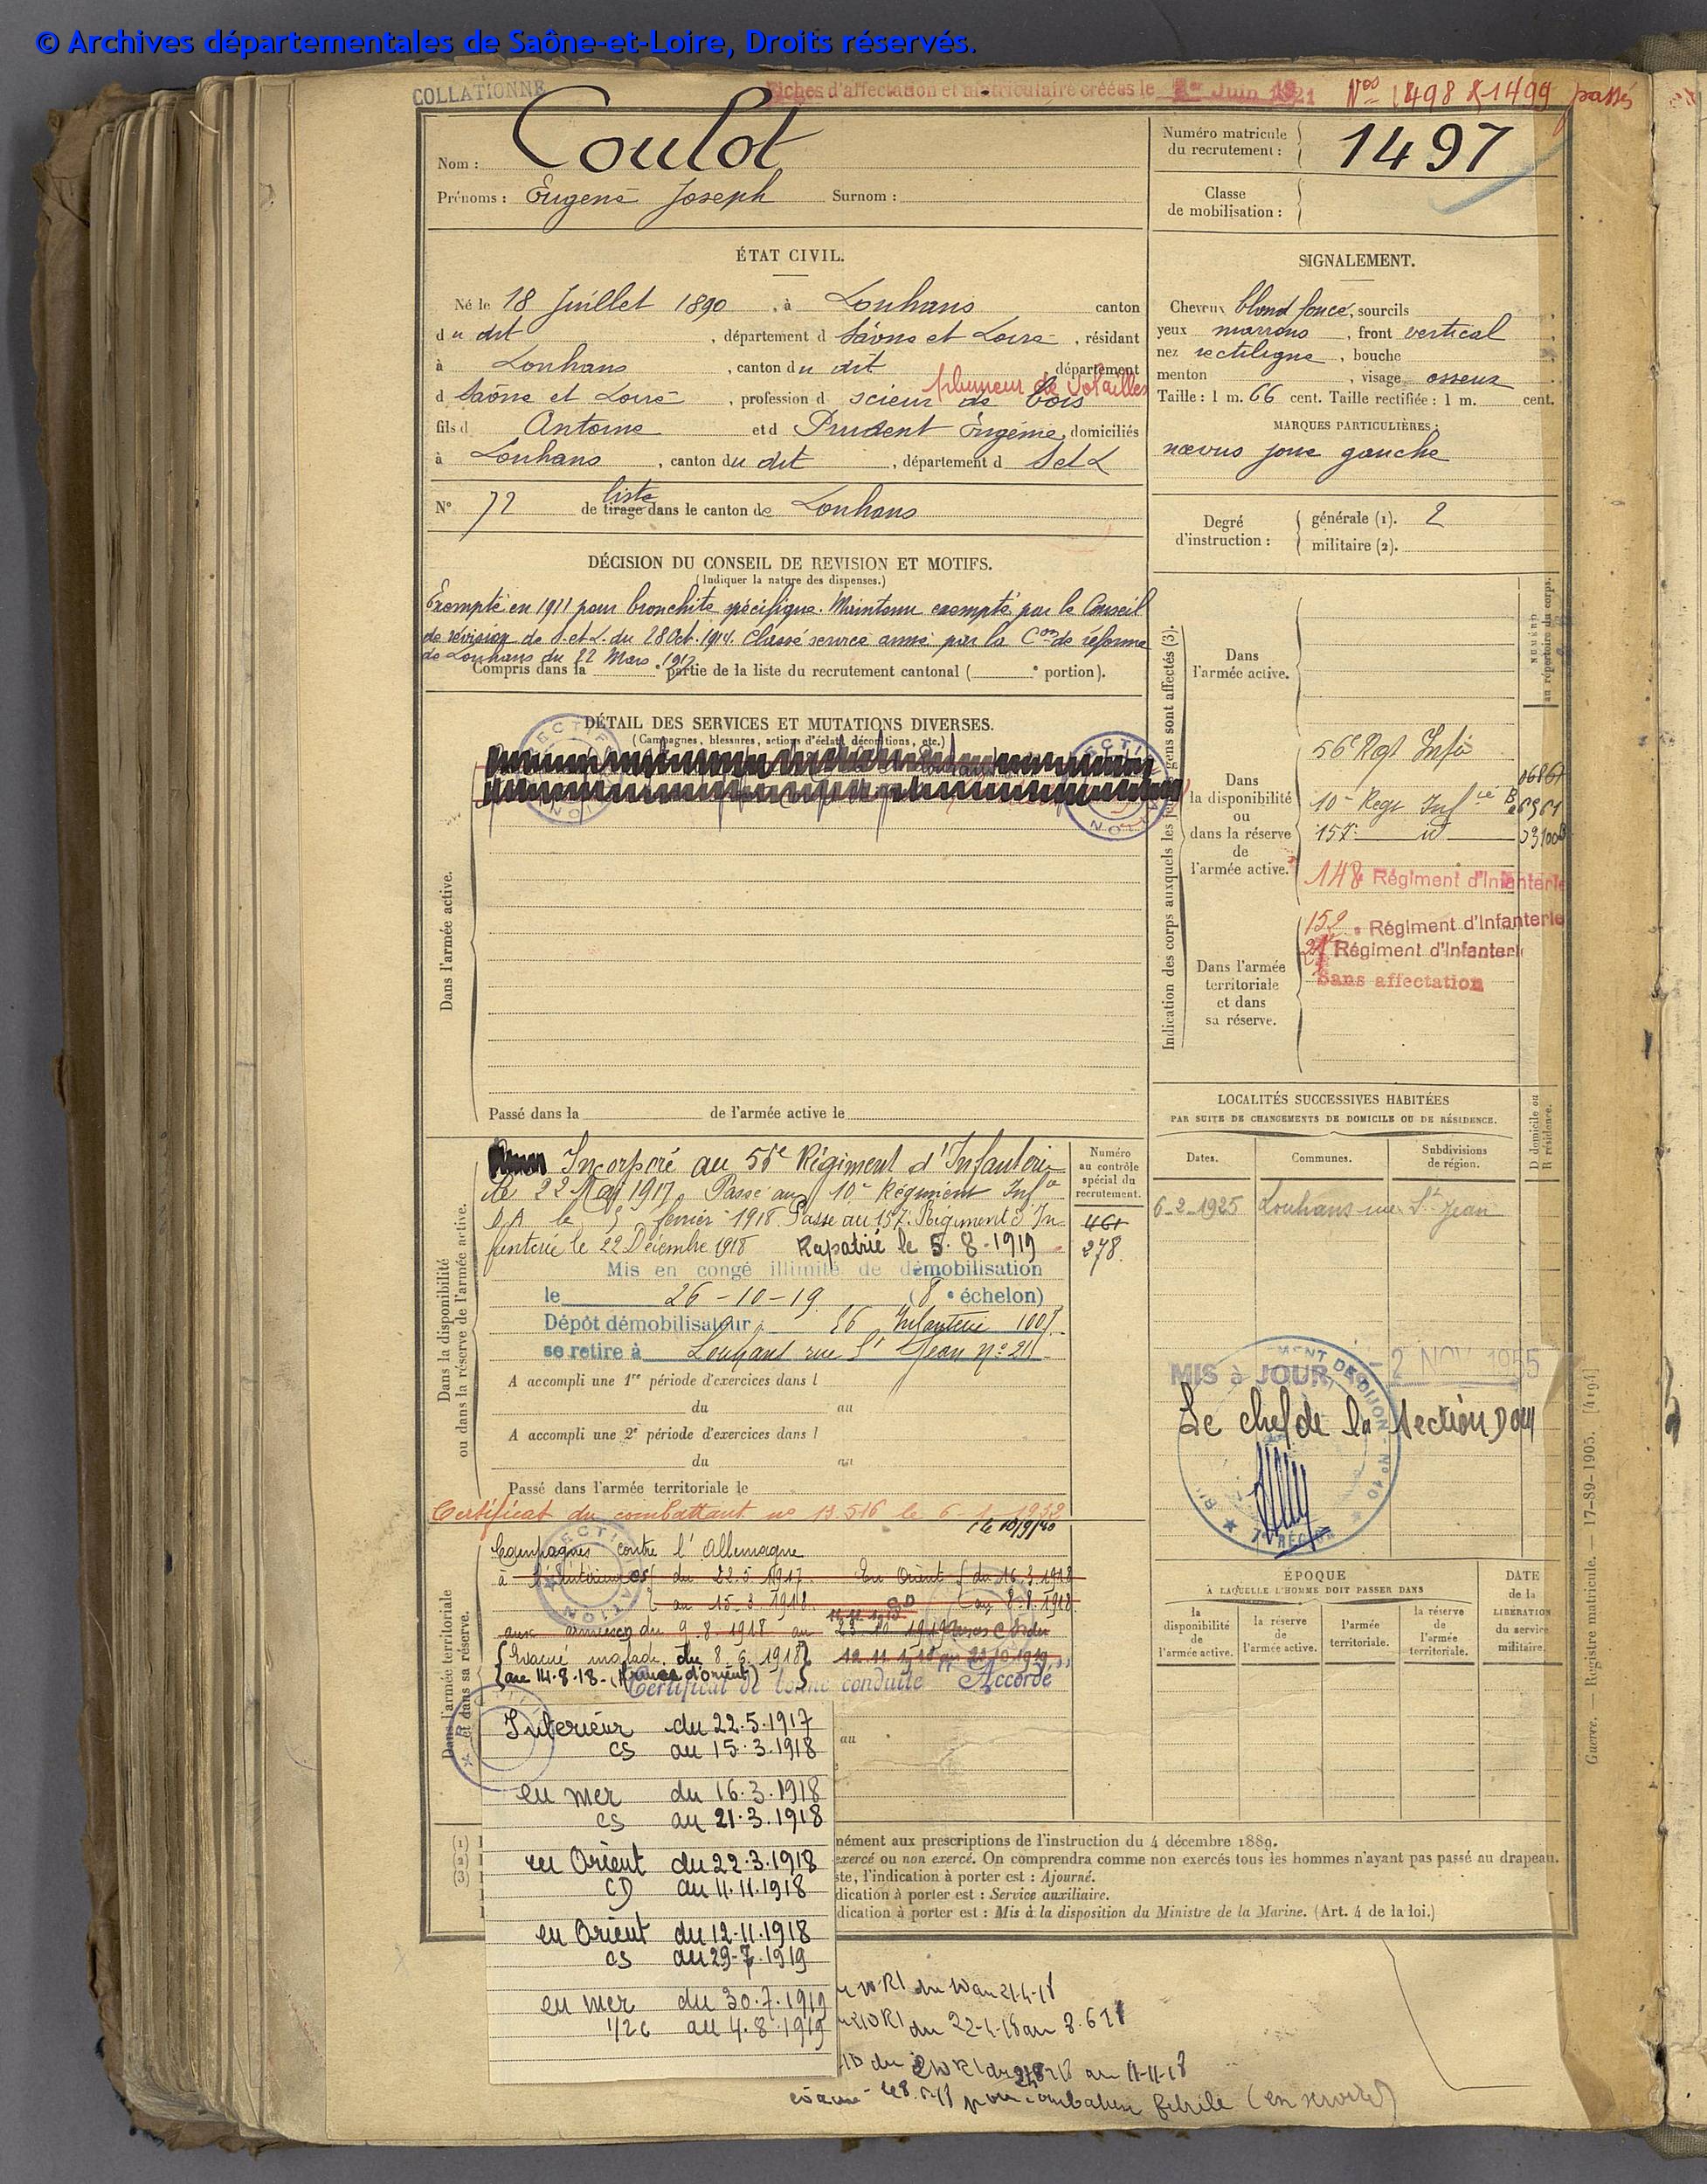 © Archives départementales de Saône-et-Loire, Droits réservés.
COLLATIONNÉ
Fiches d'affectation et matriculaire créées le 1er Juin 1921
Nos 1498 & 1499 passés
Nom : Coulot
Prénoms : Eugene Joseph Surnom :
Numéro matricule du recrutement : 1497
Classe de mobilisation :
ÉTAT CIVIL.
Né le 18 Juillet 1890, à Louhans canton
du dit, département d Saône et Loire, résidant
à Louhans, canton du dit département
plumeur de volailles
d Saône et Loire, profession d scieur de bois
fils d Antoine et d Prudent Eugénie, domiciliés
à Louhans, canton du dit, département d S et L
N° 72 de tirage liste dans le canton de Louhans
SIGNALEMENT.
Cheveux blond foncé, sourcils
yeux marrons, front vertical
nez rectiligne, bouche
menton , visage osseux
Taille : 1 m. 66 cent. Taille rectifiée : 1 m. cent.
MARQUES PARTICULIÈRES :
nœvus joue gauche
Degré d'instruction :
générale (1). 2
militaire (2).
DÉCISION DU CONSEIL DE REVISION ET MOTIFS.
(Indiquer la nature des dispenses.)
Exempté en 1911 pour bronchite spécifique. Maintenu exempté par le Conseil
de révision de S. et L. du 28 Oct. 1914. Classé service armé par la Con de réforme
de Louhans du 22 Mars 1917
Compris dans la partie de la liste du recrutement cantonal ( e portion).
DÉTAIL DES SERVICES ET MUTATIONS DIVERSES.
(Campagnes, blessures, actions d'éclat, décorations, etc.)
Dans l'armée active.
Passé dans la de l'armée active le
Indication des corps auxquels les jeunes gens sont affectés (3).
NUMÉRO au répertoire du corps.
Dans l'armée active.
Dans la disponibilité ou dans la réserve de l'armée active.
56e Regt Infie
10e Regt Infie
157e id
148e Régiment d'Infanterie
Dans l'armée territoriale et dans sa réserve.
152e Régiment d'Infanterie
Régiment d'Infanterie
Sans affectation
LOCALITÉS SUCCESSIVES HABITÉES
PAR SUITE DE CHANGEMENTS DE DOMICILE OU DE RÉSIDENCE.
Dates. Communes. Subdivisions de région. D domicile ou R résidence.
6-2-1925 Louhans rue St Jean
Dans la disponibilité ou dans la réserve de l'armée active.
Numéro au contrôle spécial du recrutement.
461
278.
Incorporé au 56e Régiment d'Infanterie
le 22 Mai 1917. Passé au 10e Régiment Infie
D A le 5 février 1918. Passé au 157e Régiment d'In-
fanterie le 22 Décembre 1918 Rapatrié le 5.8.1919
Mis en congé illimité de démobilisation
le 26-10-19 (8e échelon)
Dépôt démobilisateur : 56 Infanterie
se retire à Louhans rue St Jean n° 21
A accompli une 1re période d'exercices dans l
du au
A accompli une 2e période d'exercices dans l
du au
Passé dans l'armée territoriale le
Certificat du combattant no 13.516 le 6
Dans l'armée territoriale et dans sa réserve.
Campagnes contre l'Allemagne
à l'intérieur CS du 22.5.1917. En Orient du 16.3.1918
au 15.3.1918. au 8.8.1918
aux armées du 9.8.1918 au 23 10 1919
Evacué malade du 8.6.1918
au 14-8-18. (Armée d'orient)
Certificat de bonne conduite "Accordé"
Intérieur du 22.5.1917
CS au 15.3.1918
en mer du 16.3.1918
CS au 21.3.1918
en Orient du 22.3.1918
CD au 11.11.1918
en Orient du 12-11-1918
CS au 29-7-1919
en mer du 30.7.1919
1/2 C au 4.8.1919
au
MIS à JOUR - 2 NOV 1955
Le chef de la section
ÉPOQUE
À LAQUELLE L'HOMME DOIT PASSER DANS
la disponibilité de l'armée active.
la réserve de l'armée active.
l'armée territoriale.
la réserve de l'armée territoriale.
DATE de la LIBÉRATION du service militaire.
nément aux prescriptions de l'instruction du 4 décembre 1889.
exercé ou non exercé. On comprendra comme non exercés tous les hommes n'ayant pas passé au drapeau.
ste, l'indication à porter est : Ajourné.
dication à porter est : Service auxiliaire.
dication à porter est : Mis à la disposition du Ministre de la Marine. (Art. 4 de la loi.)
Guerre. — Registre matricule. — 17-89-1905. [4194]